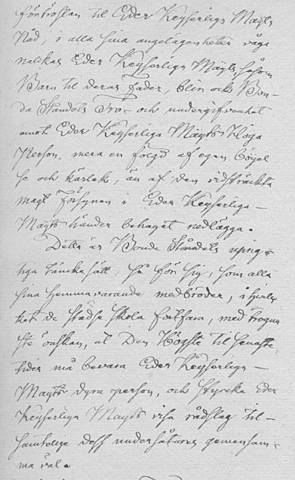 förtröstan til Eder Keyserliga Majts
Nåd, i alla sina angelägenheter våga
nalkas Eder Keyserliga Majts, såsom
Barn til deras fader, blir och Bon-
de Ståndets Tro- och undergifvenhet
emot Eder Keyserliga Majts Höga
Person, mera en fölgd af egen böjel
se och kärlek, än af den vidsträckta
magt Försynen i Eder Keyserliga
Majts händer behagat nedlägga.
Detta är Bonde Ståndets uprig-
tiga tänkesätt, så för sig, som alla
sina hemmavarande medbröder, i hvilket
de städse skola fortfara, med
önskan, at Den Högste til senaste
tider må bevara Eder Keyserliga
Majts dyra person, och styrcka Eder
Keyserliga Majts visa rådslag til
undersåtares gemensam-
ma väl.